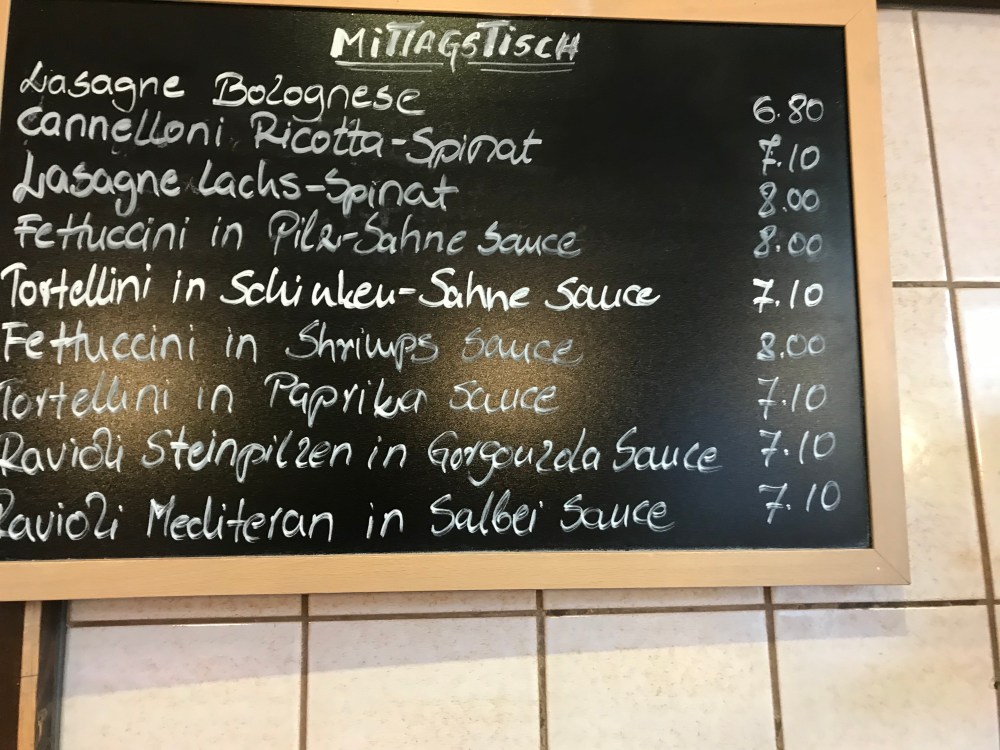 MiTTAGSTiSCH
Lasagne Bolognese 6.80
Cannelloni Ricotta-Spinat 7.10
Lasagne Lachs-Spinat 8.00
Fettuccini in Pilz-Sahne Sauce 8.00
Tortellini in Schinken-Sahne Sauce 7.10
Fettuccini in Shrimps Sauce 8.00
Tortellini in Paprika Sauce 7.10
Ravioli Steinpilzen in Gorgonzola Sauce 7.10
Ravioli Mediteran in Salbei Sauce 7.10